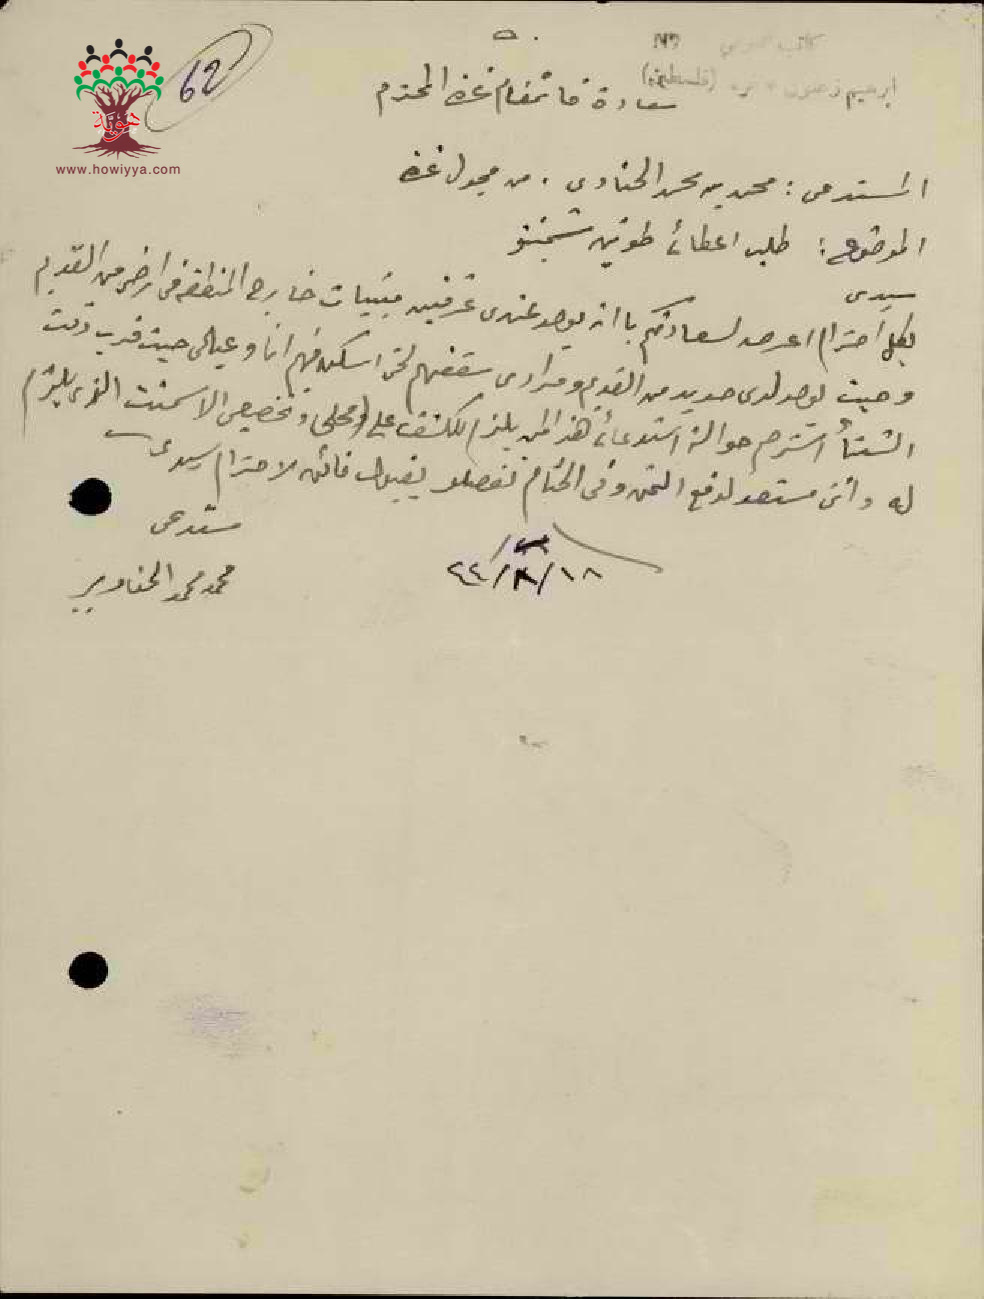 62
هوية
www.howiyya.com
كاتب عمومي
ابرهيم (فلسطين)
سعادة قائمقام غزه المحترم
المستدعي: محمد محمد الحناوي. من مجدل غزه
الموضوع: طلب اعطائي طونين شمنتو
سيدي
بكل احترام اعرض لسعادتكم باانه يوجد عندي غرفتين مبنيات خارج المنطقه في ارضي من القديم
وحيث يوجد لدي حديد من القديم ومرادي سقفهم لكي اسكن فيهم انا وعيالي حيث قرب وقت
الشتاء استرحم حوالة استدعائي هذا لمن يلزم للكشف على المحل وتخصيص الاسمنت الذي يلزم
له وانني مستعد لدفع الثمن وفي الختام تفضلو بقبول فائق الاحترام سيدي
مستدعي
محمد محمد الحناوي
١٨/٨/٤٤